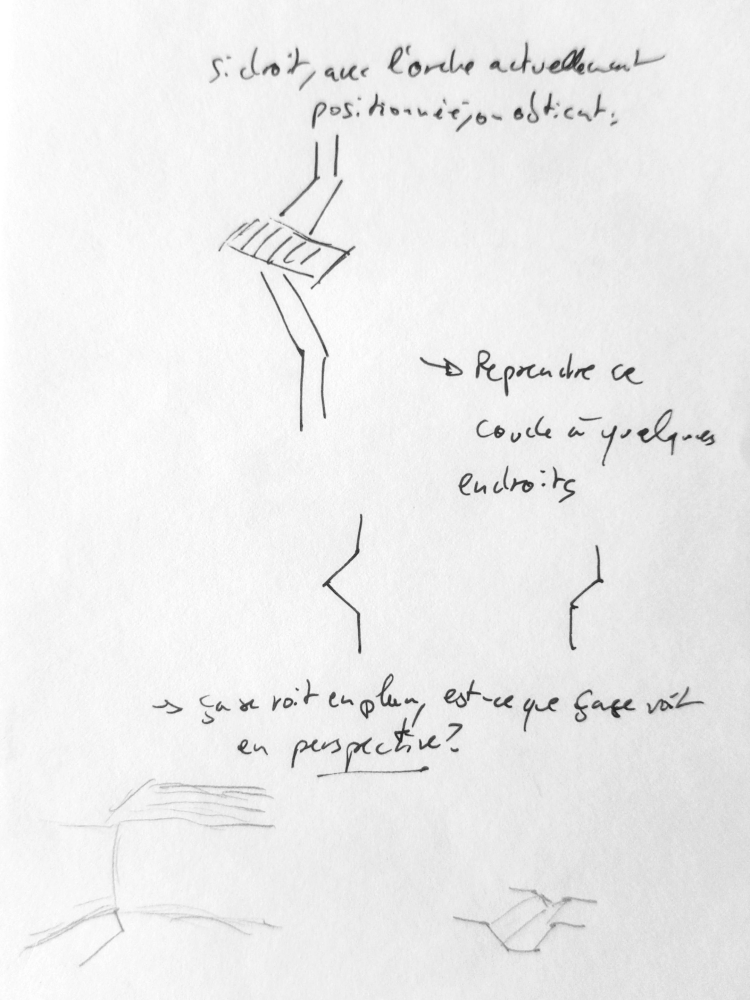 si droit, avec l'arche actuellement
positionnée, on obtient :
→ Reprendre ce
coude à quelques
endroits
→ ça se voit en plan, est-ce que ça se voit
en perspective ?